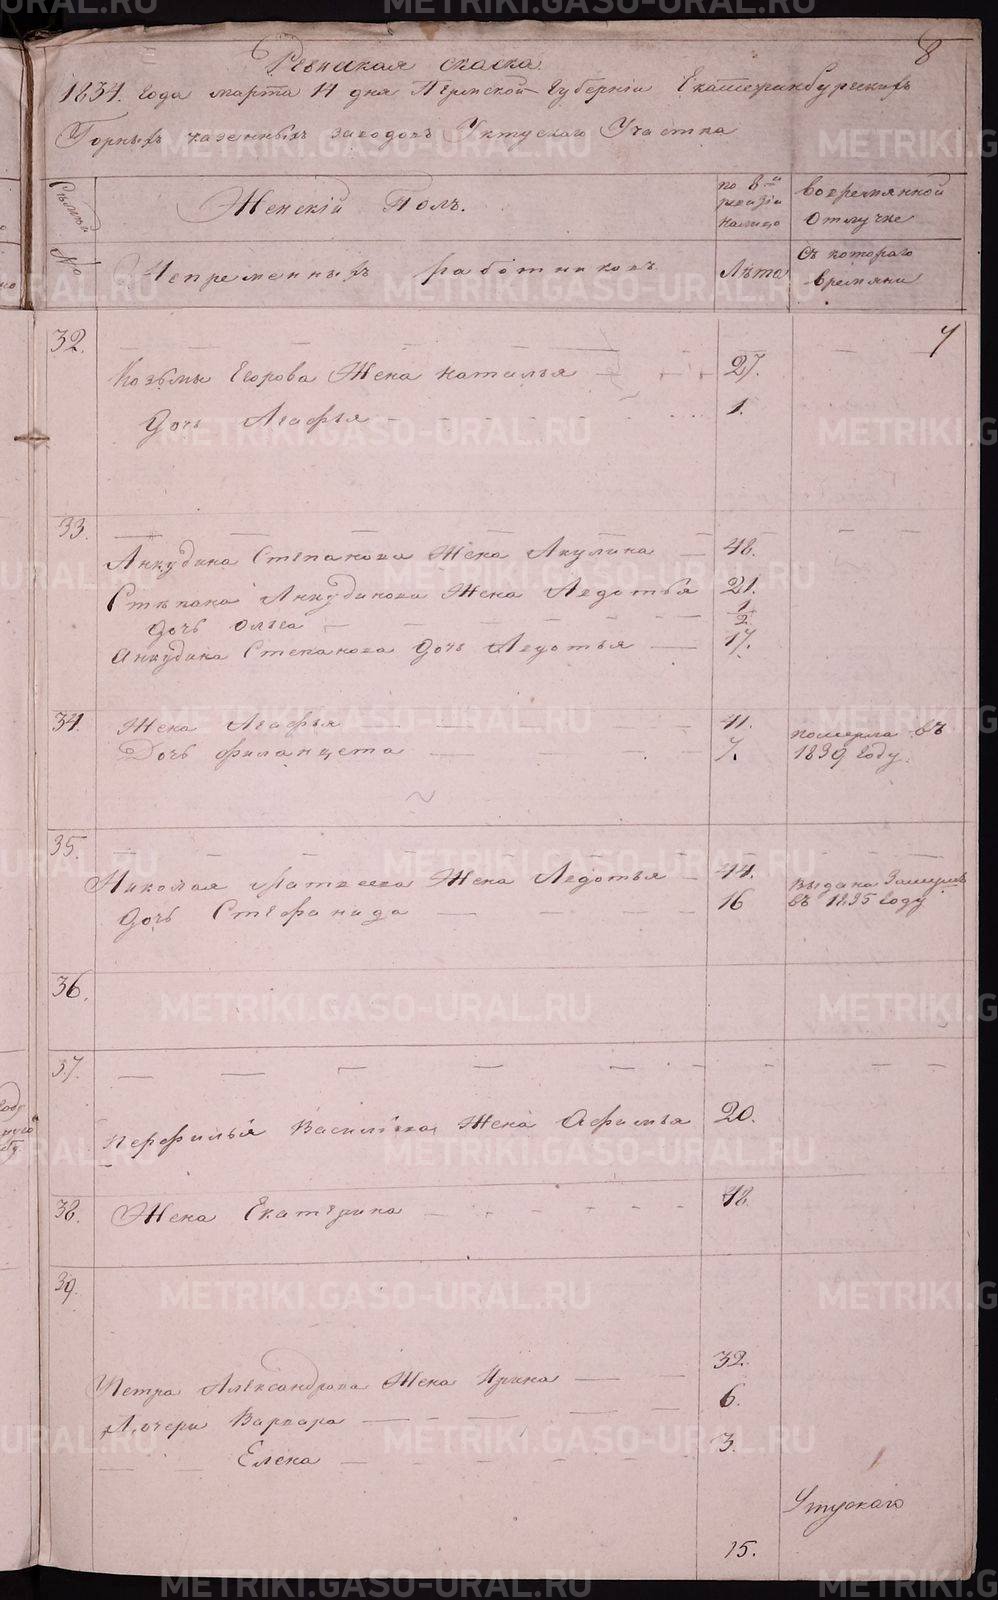 8
Ревиская скаска
1834. Года марта 14 дня Пермской Губернiи Екатеринбургскихъ
Горныхъ казенныхъ заводовъ Уктускаго Участка
Семьи № | Женскiй Полъ. | по 8й ревизiи налицо | Во времянной отлучке
Непременныхъ работниковъ | Лѣта | Съ котораго времяни
32.
Козьмы Егорова Жена Наталья 27.
Дочь Агафья 1.
33.
Анкудина Степанова Жена Акулина 48.
Степана Анкудинова Жена Авдотья 21.
Дочь Ольга 1/2
Анкудина Степанова Дочь Авдотья 17.
34. Жена Агафья 41.
Дочь филанцета 7. померла въ 1839 году.
35.
Николая Матвеева Жена Авдотья 44.
Дочь Стефанида 16 выдана Замужъ въ 1835 году
36.
37.
Перфилья Василiева Жена Афимья 20.
38. Жена Екатерина 18
39.
Петра Александрова Жена Ирина 32.
Дочери Варвара 6.
Елена 3.
Уктускаго
15.
METRIKI.GASO-URAL.RU